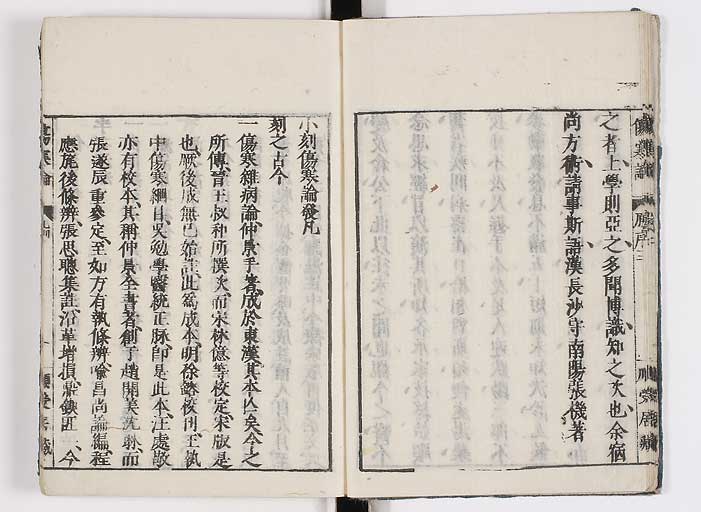 之者上學則亞之多聞博識知之次也余宿
尚方術請事斯語漢長沙守南陽張機著
小刻傷寒論發凡
刻之古今
一傷寒雜病論仲景手著成於東漢其本亡矣今之
所傳晉王叔和所撰次而宋林億等校定宋版是
也厥後成無已始註此為成本明徐鎔校刊王執
中傷寒綱目吳勉學醫統正脉即是此本注處敬
亦有校本其稱仲景全書者創于趙開美沈琳而
張遂辰重參定至如方有執條辨喻昌尚論編程
應旄後條辨張思聰集註沿革增損鼎鐭
今
傷寒論